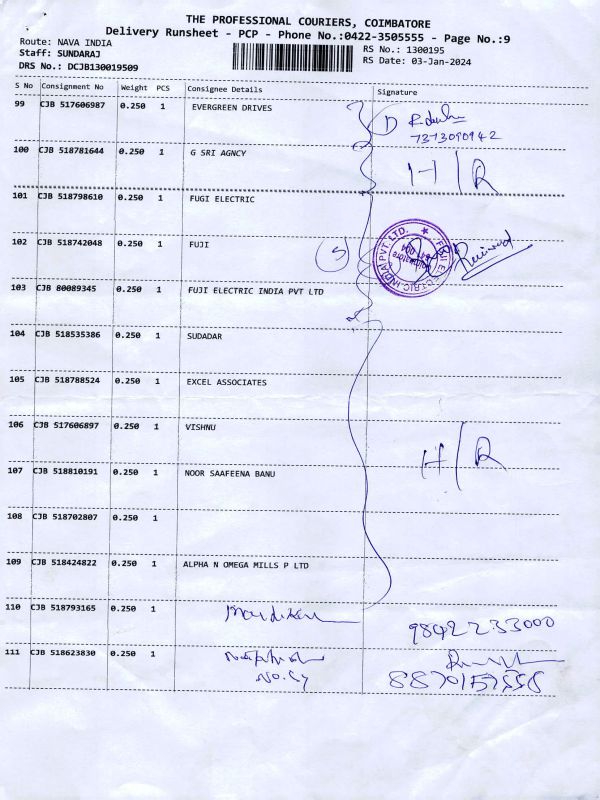 THE PROFESSIONAL COURIERS, COIMBATORE
Delivery Runsheet - PCP - Phone No.:0422-3505555 - Page No.:9
Route: NAVA INDIA RS No.: 1300195
Staff: SUNDARAJ RS Date: 03-Jan-2024
DRS No.: DCJB130019509
S No Consignment No Weight PCS Consignee Details Signature
99 CJB 517606987 0.250 1 EVERGREEN DRIVES
7373090942
100 CJB 518781644 0.250 1 G SRI AGNCY H/R
101 CJB 518798610 0.250 1 FUGI ELECTRIC
102 CJB 518742048 0.250 1 FUJI 5 Received
FUJI ELECTRIC INDIA PVT. LTD. ★
103 CJB 80089345 0.250 1 FUJI ELECTRIC INDIA PVT LTD
104 CJB 518535386 0.250 1 SUDADAR
105 CJB 518788524 0.250 1 EXCEL ASSOCIATES
106 CJB 517606897 0.250 1 VISHNU H/R
107 CJB 518810191 0.250 1 NOOR SAAFEENA BANU
108 CJB 518702807 0.250 1
109 CJB 518424822 0.250 1 ALPHA N OMEGA MILLS P LTD
110 CJB 518793165 0.250 1 9842233000
111 CJB 518623830 0.250 1